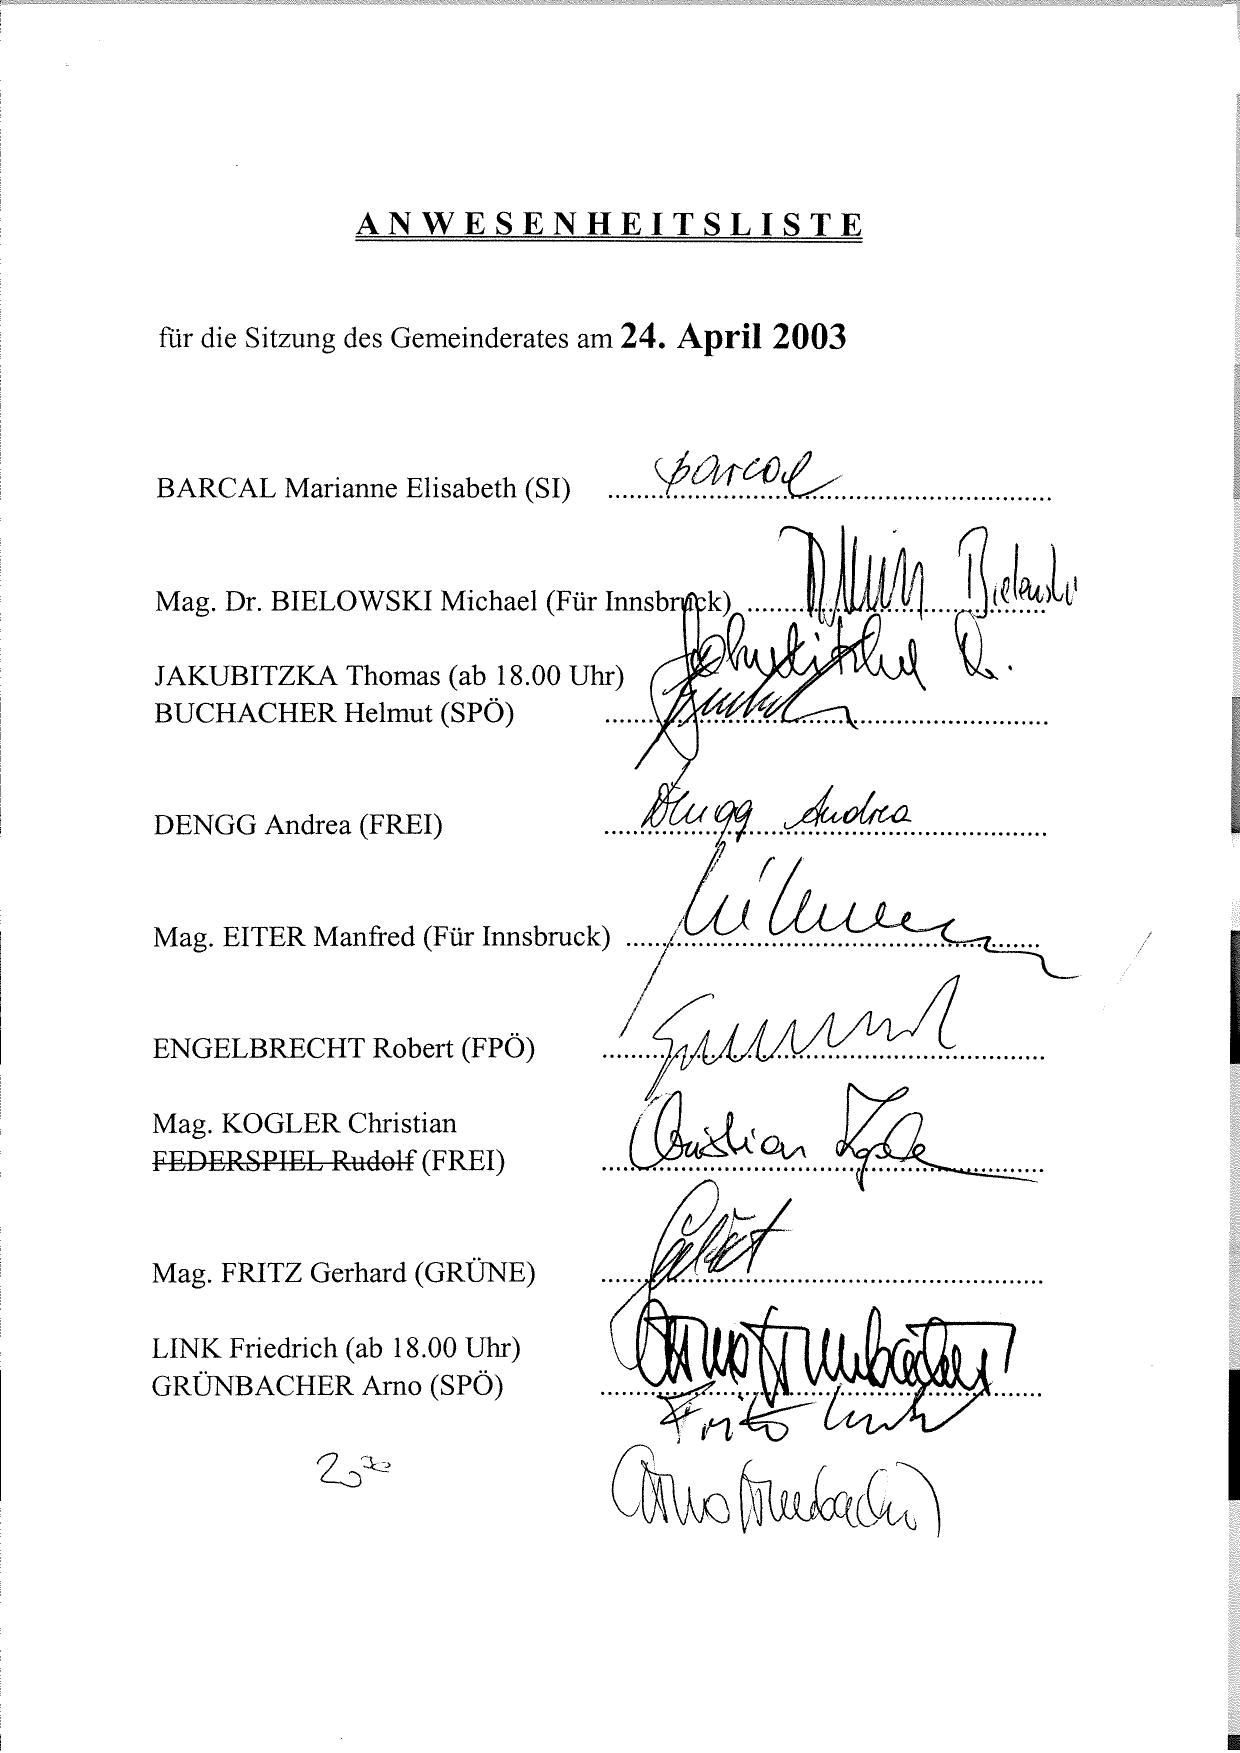 ANWESENHEITSLISTE
für die Sitzung des Gemeinderates am 24. April 2003
BARCAL Marianne Elisabeth (SI) Barcal
Mag. Dr. BIELOWSKI Michael (Für Innsbruck) Bielowski
JAKUBITZKA Thomas (ab 18.00 Uhr) Jakubitzka
BUCHACHER Helmut (SPÖ)
DENGG Andrea (FREI) Dengg Andrea
Mag. EITER Manfred (Für Innsbruck)
ENGELBRECHT Robert (FPÖ)
Mag. KOGLER Christian
FEDERSPIEL Rudolf (FREI) Christian Kogler
Mag. FRITZ Gerhard (GRÜNE)
LINK Friedrich (ab 18.00 Uhr) Arno Grünbacher
GRÜNBACHER Arno (SPÖ)
Fritz Link
Arno Grünbacher